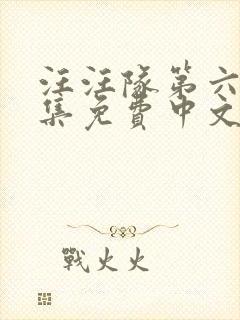 汪汪隊第六
集免費中文
戰火火